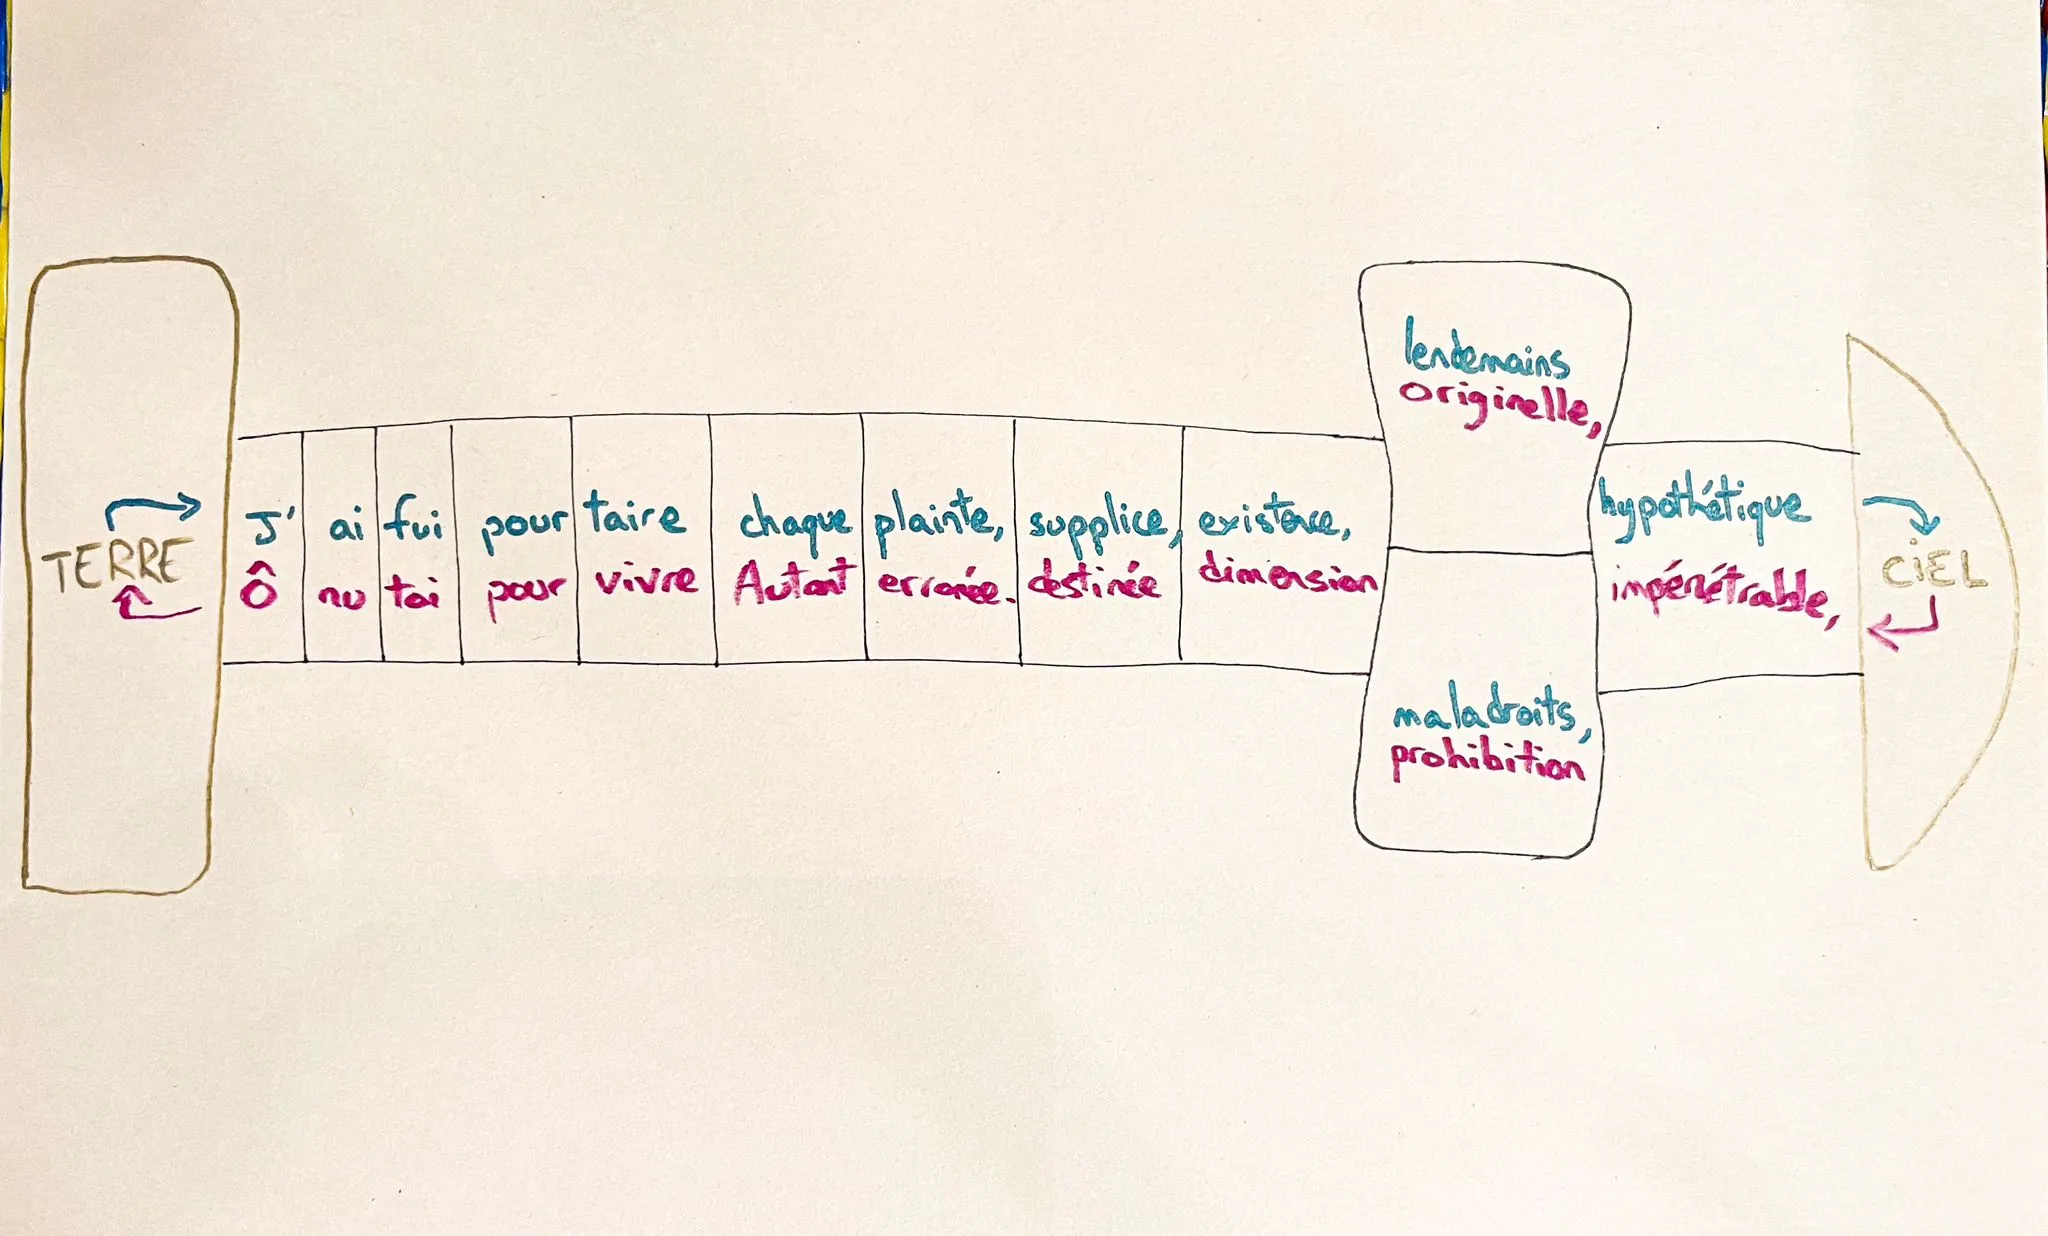 TERRE
J' ai fui pour taire chaque plainte, supplice, existence,
lendemains
maladroits,
hypothétique
CiEL
impénétrable,
originelle,
prohibition
Ô nu toi pour vivre Autant erronée. destinée dimension